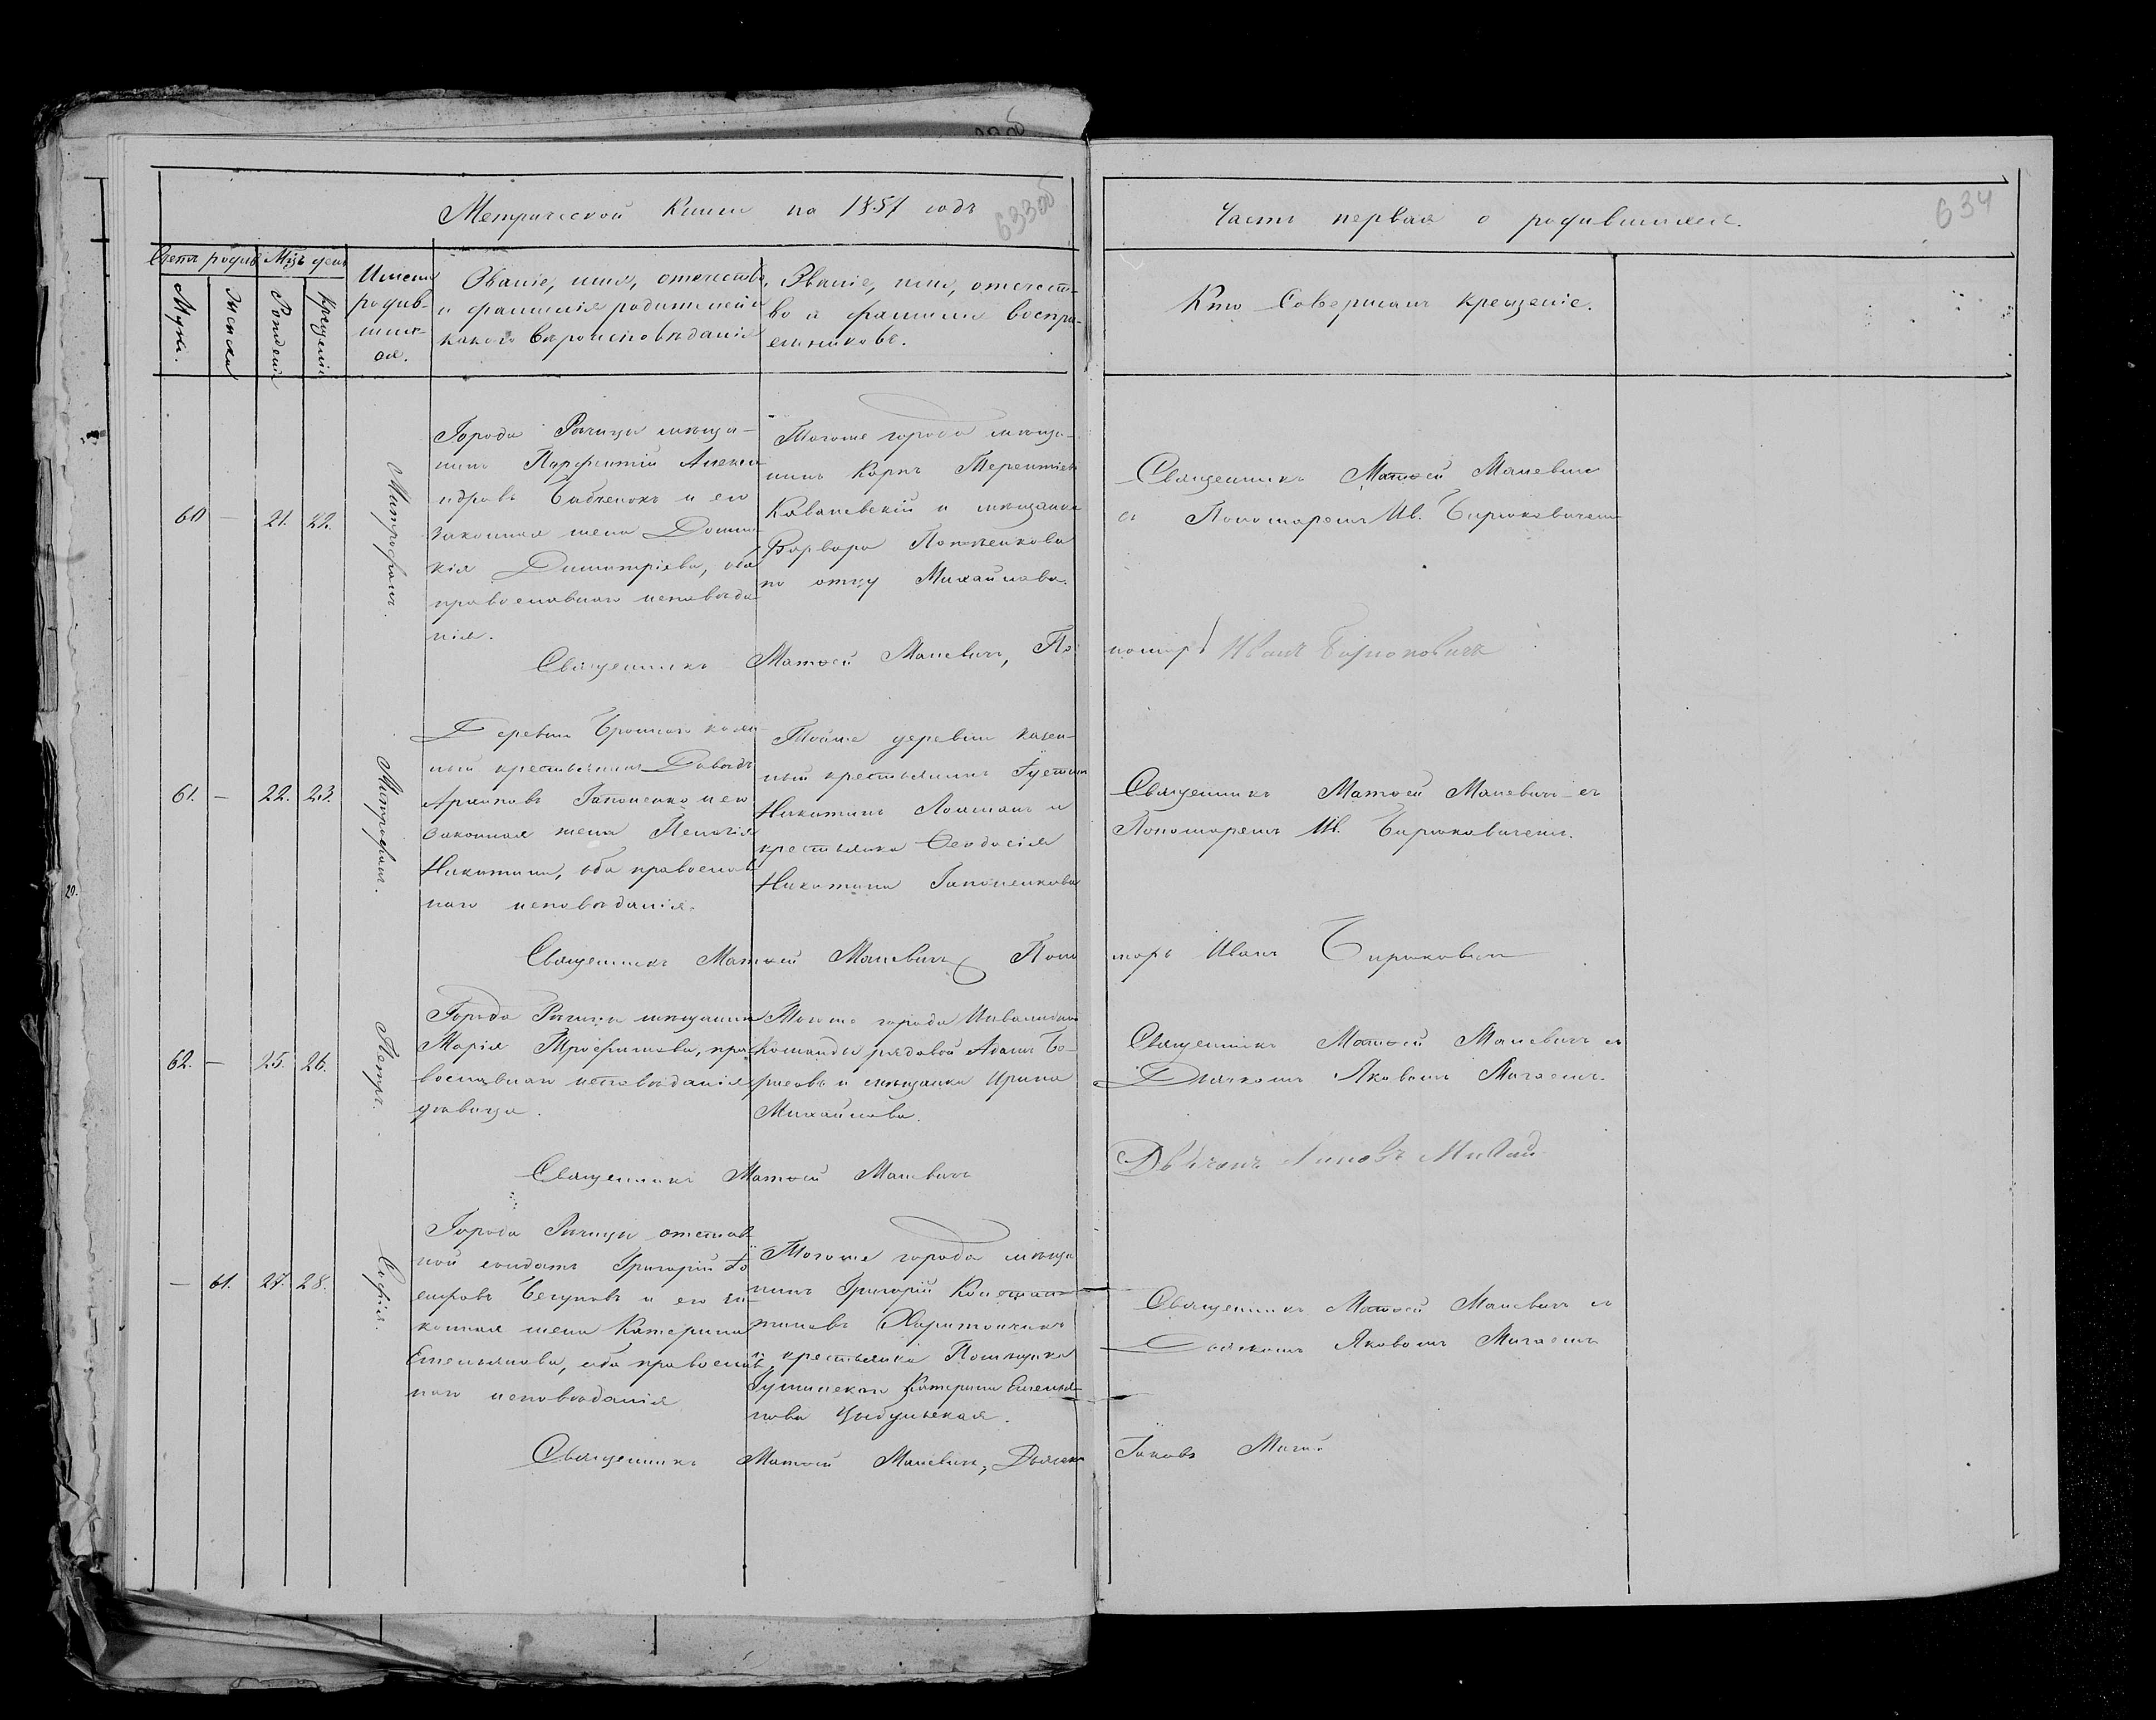 Метрической Книги на 1857 годъ
633об
Часть первая о родившихся.
634
Счетъ родив Мѣц. день
Мужс.
Женска
Рожденія
Крещенія
Имена
родив-
ших-
ся.
Званіе, имя, отечество,
и фамилія родителей и
какого вѣроисповѣданія
Званіе, имя, отечест-
во и фамилія воспрі-
емниковъ.
Кто Совершалъ крещеніе.
60 — 21. 22.
Митрофанъ.
Города Рѣчицы мѣща-
нинъ Парфентій Алекса
ндровъ Бабченокъ и его
законная жена Домни
кія Димитріева, оба
православнаго исповѣда
нія.
Тогоже города мѣща-
нинъ Карпъ Терентіев
Ковалевскій и мѣщанка
Варвара
по отцу Михайлова.
Священникъ Матѳей Малевичъ
съ Пономаремъ Ив. Бирюковичемъ
Священникъ Матѳей Малевичъ, По
номарь Иванъ Бирюковичъ
61. — 22. 23.
Митрофанъ.
Деревни Броннаго казен
ный крестьянинъ Давыдъ
Архиповъ Гапоненко и его
законная жена Пелагія
Никитина, оба православ
наго исповѣданія.
Тойже деревни казен-
ный крестьянинъ Іустинъ
Никитинъ Лошманъ и
крестьянка Ѳеодосія
Никитина Гапоненкова
Священникъ Матѳей Малевичъ съ
Пономаремъ Ив. Бирюковичемъ.
Священникъ Матѳей Малевичъ Поно
марь Иванъ Бирюковичъ
62. — 25. 26.
Петръ.
Города Рѣчицы мѣщанка
Марія Трофимова, пра
вославнаго исповѣданія
дѣвица.
Тогоже города Инвалидной
команды рядовой Адамъ Бо-
рисовъ и мѣщанка Ирина
Михайлова.
Священникъ Матѳей Малевичъ съ
Дьячкомъ Яковомъ Мигаемъ.
Священникъ Матѳей Малевичъ
Дьячокъ Яковъ Мигай
— 61. 27. 28.
Софія.
Города Рѣчицы отстав
ной солдатъ Григорій Іо
сифовъ Бегуновъ и его за-
конная жена Катерина
Емельянова, оба православ
наго исповѣданія
Тогоже города мѣща
нинъ Григорій Констан
тиновъ Харитончикъ
и крестьянка Помѣщика
Катерина Емелья-
нова Цыбульская.
Священникъ Матѳей Малевичъ съ
Дьячкомъ Яковомъ Мигаемъ
Священникъ Матѳей Малевичъ, Дьячек
Іаковъ Мигай